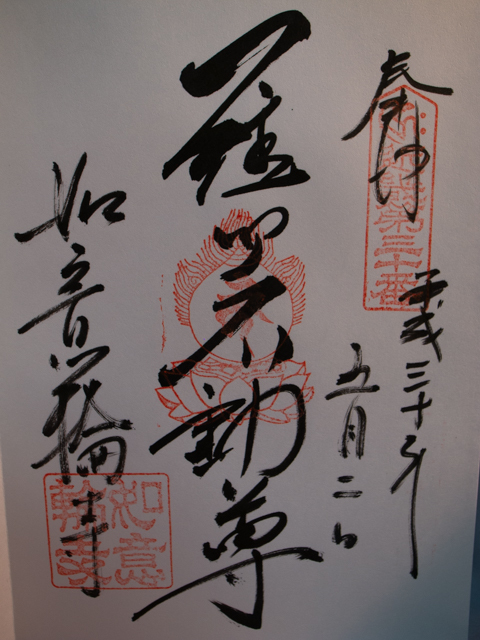 奉拝
第三十番
平成三十年
五月二日
不動尊
如意輪寺
如意
輪寺